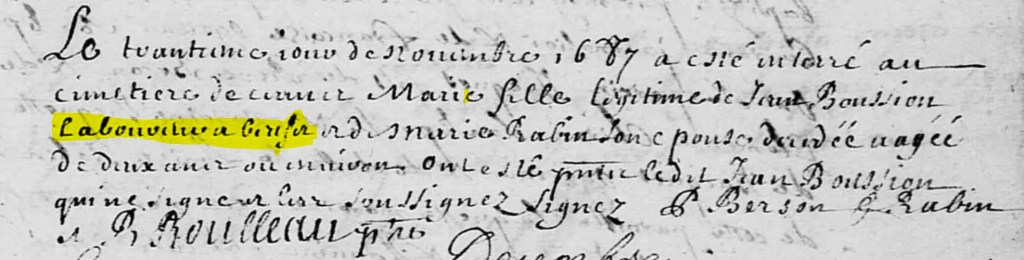 Le trantieme jour de novembre 1687 a esté interré au
cimetiere de ceans Marie fille legitime de Jean Boussion
Laboureur a et de marie Rabin son epouse decedée aagée
de deux ans ou environ ont esté pntz ledit Jean Boussion
qui ne signe et les soussignez signez P Berson G Rabin
R Roulleau pbre